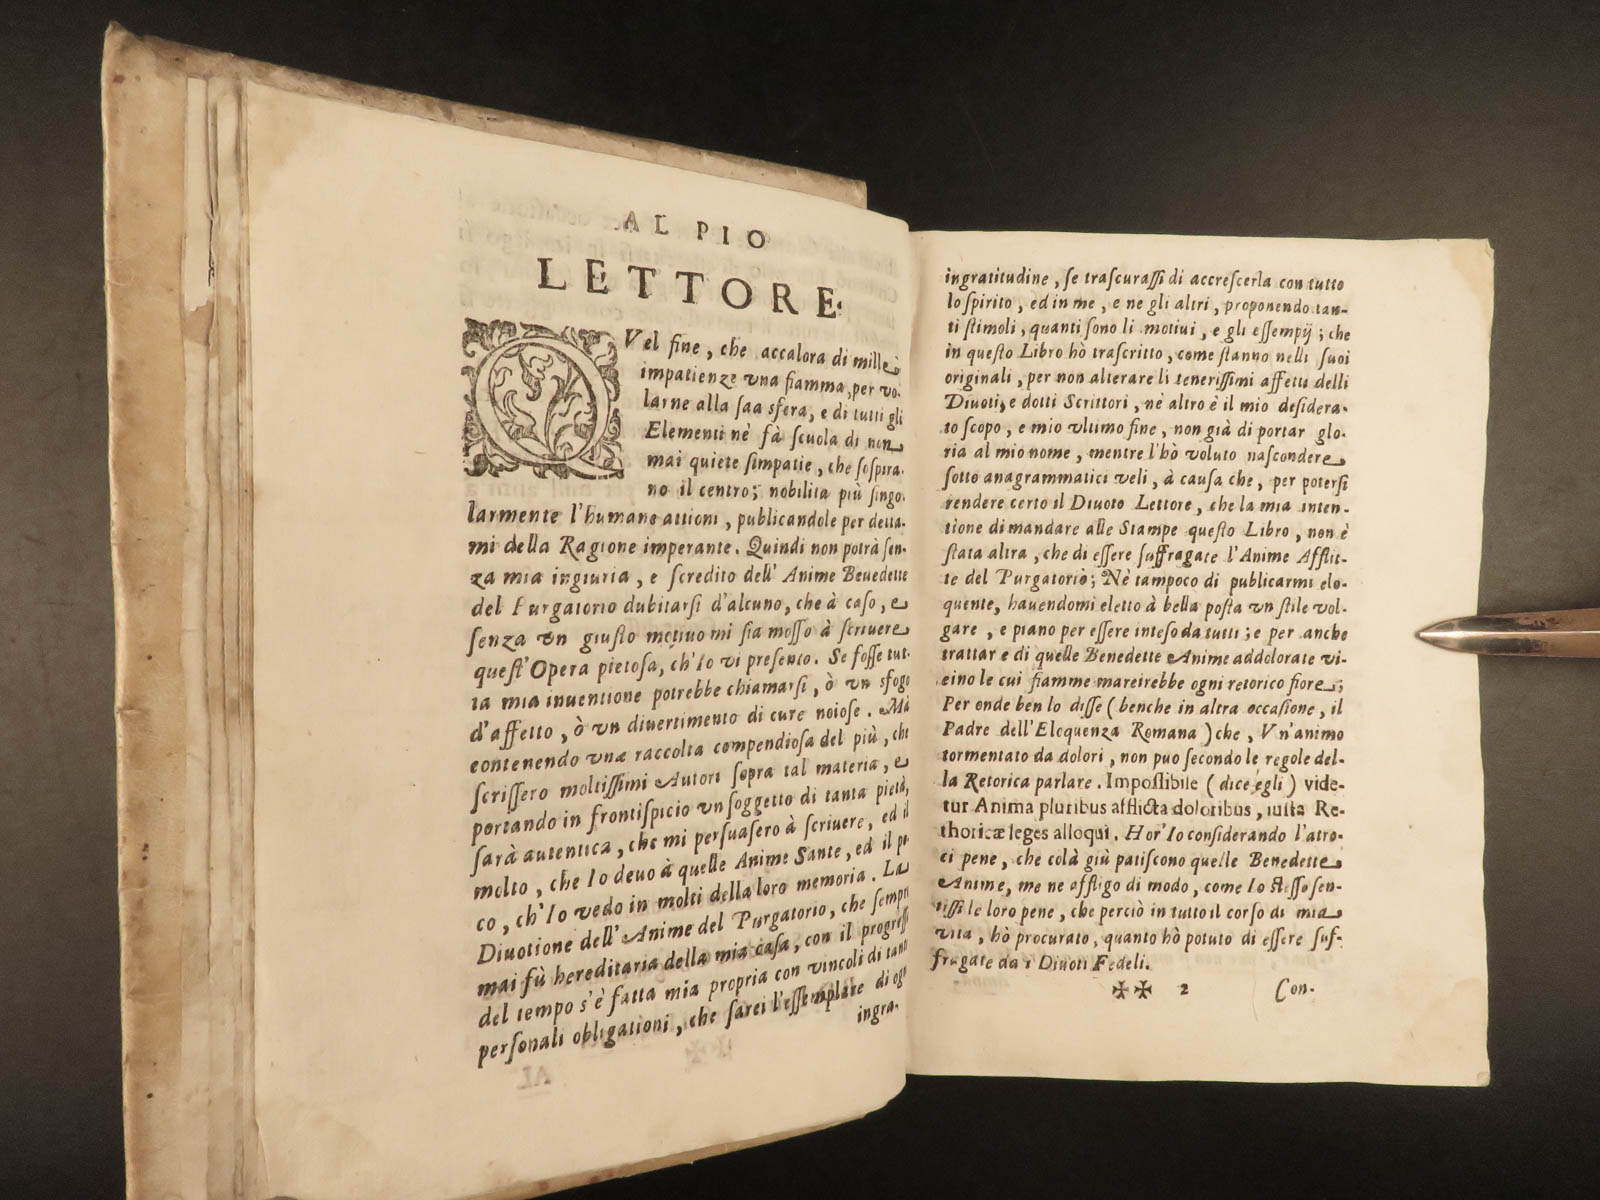 AL PIO
LETTORE.
QVel fine, che accalora di mille
impatienze vna fiamma, per vo-
larne alla saa sfera, e di tutti gli
Elementi nè fà scuola di non
mai quiete simpatie, che sospira-
no il centro; nobilita più singo-
larmente l'humane attioni, publicandole per detta-
mi della Ragione imperante. Quindi non potrà sen-
za mia ingiuria, e scredito dell' Anime Benedette
del Purgatorio dubitarsi d'alcuno, che à caso, e
senza vn giusto motiuo mi sia mosso à scriuere
quest'Opera pietosa, ch'Io vi presento. Se fosse tut-
ta mia inuentione potrebbe chiamarsi, ò vn sfogo
d'affetto, ò vn diuertimento di cure noiose. Mà
contenendo vna raccolta compendiosa del più, che
scrissero moltissimi Autori sopra tal materia, e
portando in frontispicio vn soggetto di tanta pietà,
sarà autentica, che mi persuasero à scriuere, ed il
molto, che Io deuo à quelle Anime Sante, ed il po-
co, ch'Io vedo in molti della loro memoria. La
Diuotione dell'Anime del Purgatorio, che sempre
mai fù hereditaria della mia casa, con il progresso
del tempo s'è fatta mia propria con vincoli di tante
personali obligationi, che sarei l'essemplare di ogni
ingra-
ingratitudine, se trascurassi di accrescerla con tutto
lo spirito, ed in me, e ne gli altri, proponendo tan-
ti stimoli, quanti sono li motiui, e gli essempij; che
in questo Libro hò trascritto, come stanno nelli suoi
originali, per non alterare li tenerissimi affetti delli
Diuoti, e dotti Scrittori, nè altro è il mio desidera-
to scopo, e mio vltimo fine, non già di portar glo-
ria al mio nome, mentre l'hò voluto nascondere
sotto anagrammatici veli, à causa che, per potersi
rendere certo il Diuoto Lettore, che la mia inten-
tione di mandare alle Stampe questo Libro, non è
stata altra, che di essere suffragate l'Anime Afflit-
te del Purgatorio; Nè tampoco di publicarmi elo-
quente, hauendomi eletto à bella posta vn stile vol-
gare, e piano per essere inteso da tutti; e per anche
trattar e di quelle Benedette Anime addolorate vi-
cino le cui fiamme mareirebbe ogni retorico fiore;
Per onde ben lo disse (benche in altra occasione, il
Padre dell'Eloquenza Romana) che, Vn'animo
tormentato da dolori, non può secondo le regole del-
la Retorica parlare. Impossibile (dice egli) vide-
tur Anima pluribus afflicta doloribus, iusta Re-
thoricæ leges alloqui. Hor'Io considerando l'atro-
ci pene, che colà giù patiscono quelle Benedette
Anime, me ne affligo di modo, come Io stesso sen-
tissi le loro pene, che perciò in tutto il corso di mia
vita, hò procurato, quanto hò potuto di essere suf-
fragate da i Diuoti Fedeli.
✠✠ 2 Con-